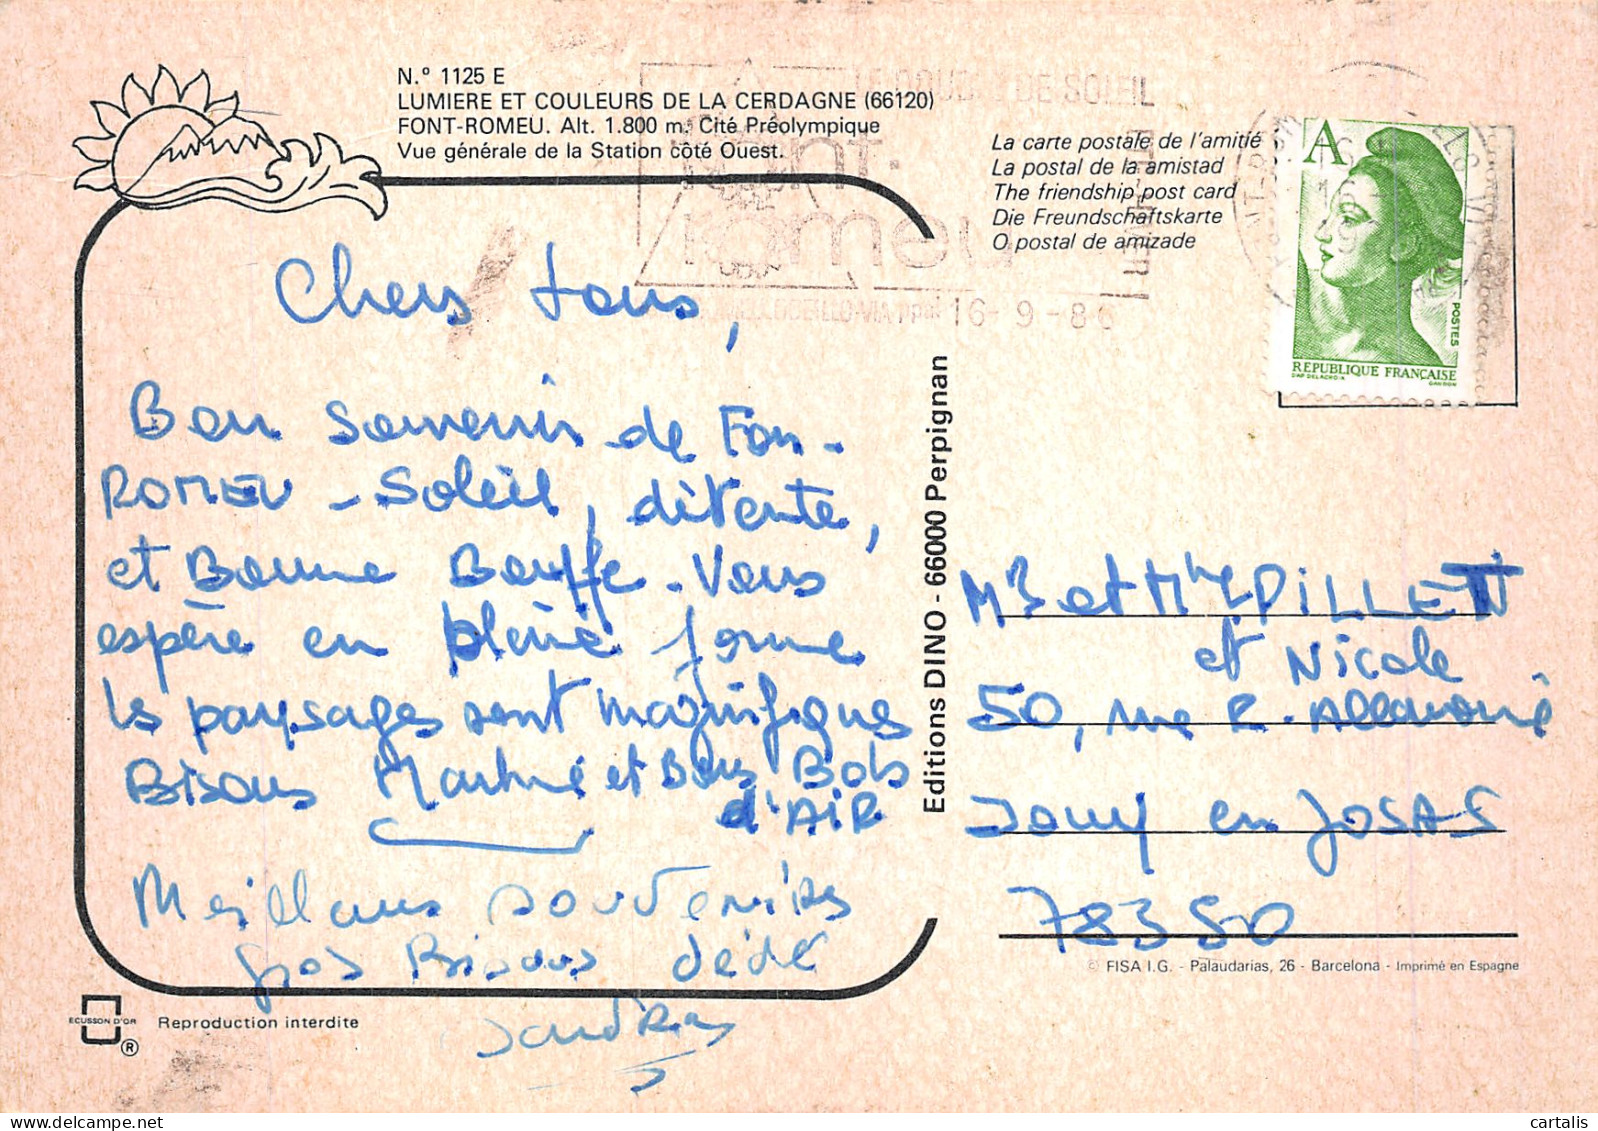 N.° 1125 E
LUMIERE ET COULEURS DE LA CERDAGNE (66120)
FONT-ROMEU. Alt. 1.800 m. Cité Préolympique
Vue générale de la Station côté Ouest.
La carte postale de l'amitié
La postal de la amistad
The friendship post card
Die Freundschaftskarte
O postal de amizade
DE SOLEIL
font-
romeu
16-9-86
A
POSTES
REPUBLIQUE FRANÇAISE
DAP DELACROIX
GANDON
Chers tous,
Bon Souvenir de Fon-
ROMEU - Soleil, détente,
et Bonne Bouffe. Vous
espère en pleine forme
les paysages sont magnifiques
Bisous Martine et Bons Bols
d'AiR
Meilleurs souvenirs
gros Bisous dédé
Editions DINO - 66000 Perpignan
Mr et Mme PiLLETT
et Nicole
50, rue
Jouy en JOSAS
78350
© FISA I.G. - Palaudarias, 26 - Barcelona - Imprimé en Espagne
ECUSSON D'OR
®
Reproduction interdite
cartalis